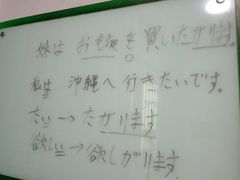 妹は おもちゃを 買いたがります。
私は 沖縄へ 行きたいです。
たい → たがります
欲しい → 欲しがります